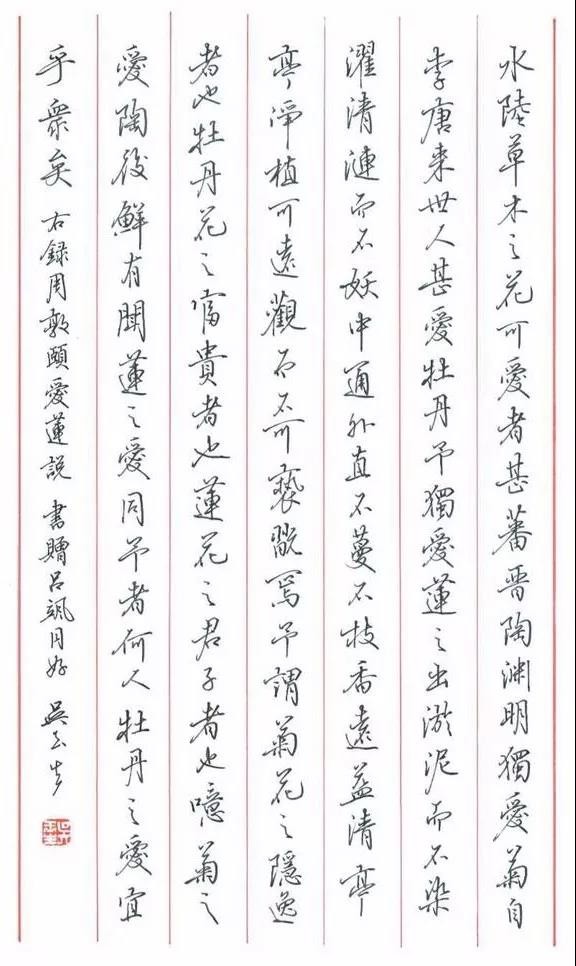 水陸草木之花可愛者甚蕃晋陶渊明獨愛菊自
李唐来世人甚愛牡丹予獨愛蓮之出淤泥而不染
濯清漣而不妖中通外直不蔓不枝香遠益清亭
亭淨植可遠觀而不可褻翫焉予謂菊花之隱逸
者也牡丹花之富貴者也蓮花之君子者也噫菊之
愛陶後鮮有聞蓮之愛同予者何人牡丹之愛宜
乎衆矣 右録周敦頤愛蓮説 書贈吕飒同好 吳玉生